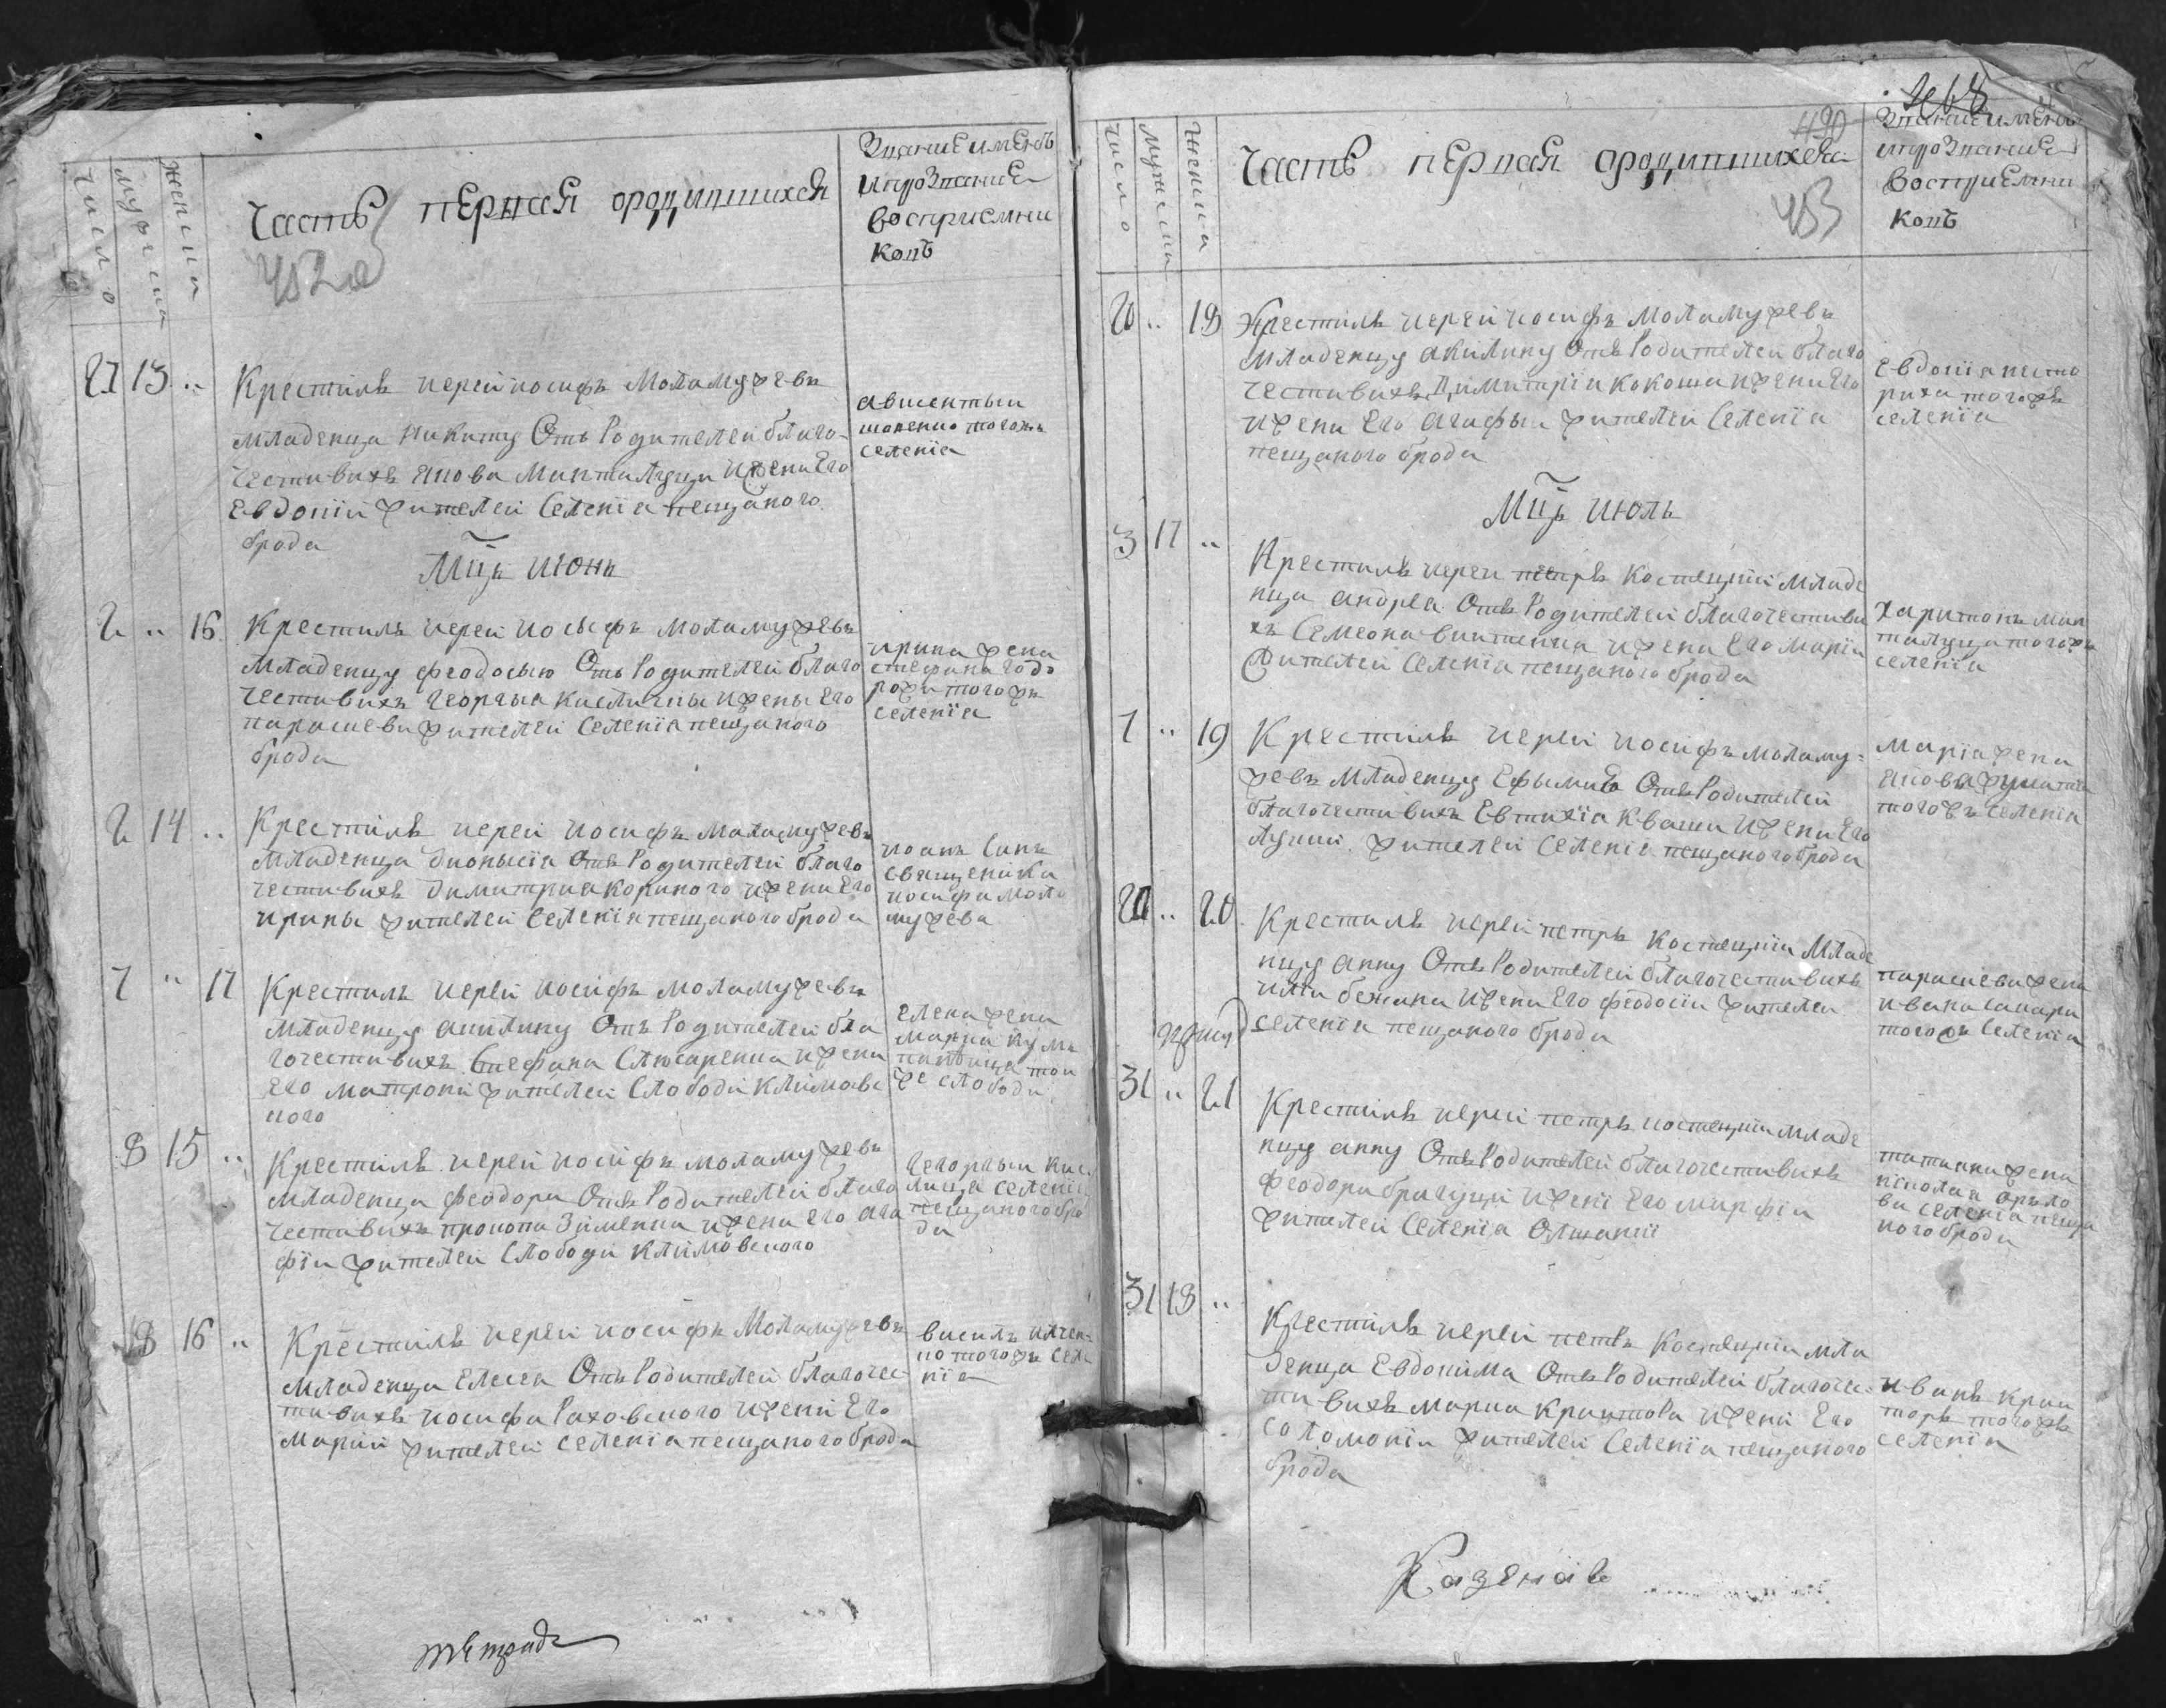 число
мужеска
женска
Часть первая ородившихся
452об
Звание именъ
ипрозвание
восприемни
ковъ
27 13 ..
Крестилъ иерей иосифъ моламужевъ
младенца никиту Отъ Родителей благо-
честивихъ якова манталуци ижени Его
Евдокiи жителей Селенiя пещаного
брода
авксентiи
того жъ
селенiя
Мцъ июнь
2 .. 16
Крестилъ иерей иосыфъ моламужевъ
младенцу феодосыю Отъ Родителей благо
честивихъ георгыя кислицы ижены Его
параскеви жителей Селенiя пещаного
брода
ирина жена
стефана
того жъ
селенiя
2 14 ..
Крестилъ иерей иосифъ моламужевъ
младенца дионысiя Отъ Родителей благо
честивихъ димитрия коркного ижени Его
ирины жителей Селенiя пещаного брода
иоанъ синъ
священика
иосифа мола
мужева
7 .. 17
Крестилъ иерей иосифъ моламужевъ
младенцу акилину Отъ Родителей бла
гочестивихъ Стефана Слюсаренка ижени
Его матрони жителей Слободи климовс
кого
елена жена
марка
той
же слободи
8 15 ..
Крестилъ иерей иосифъ моламужевъ
младенца феодора Отъ Родителей благо
честивихъ прокопа Зименка ижени Его ага
фiи жителей Слободи климовского
георгыи кис
лица селенiя
пещаного бро
да
8 16 ..
Крестилъ иерей иосифъ моламужевъ
младенца елисея Отъ Родителей благочес
тивихъ иосифа Раховского ижени Его
марiи жителей селенiя пещаного брода
василъ илчен
ко того жъ селе
нiя
тетрадъ
число
мужеска
женска
Часть первая ородившихся
490
453
468
Звание именъ
ипрозвание
восприемни
ковъ
20 .. 18
Крестилъ иерей иосифъ моламужевъ
младенцу акилину Отъ Родителей благо
честивихъ димитрiя кокоша ижени Его
ижени Его агафыи жителей Селенiя
пещаного брода
Евдокiя
того жъ
селенiя
Мцъ июль
3 17 ..
Крестилъ иереи петръ костецкiи младе
нца андрея Отъ Родителей благочестиви
хъ Семеона ижени Его марiи
жителей Селенiя пещаного брода
харитонъ ман
талуца того жъ
селенiя
7 .. 19
Крестилъ иерей иосифъ моламу-
жевъ младенцу Ефымию Отъ Родителей
благочестивихъ Евтихiя кваши ижени Его
лукии жителей Селенiе пещаного брода
марiа жена
якова
того жъ Селенiя
20 .. 20
Крестилъ иерей петръ костецкiи младе
нцу анну Отъ Родителей благочестивихъ
илiи бежана ижени Его феодосiи жителей
селенiя пещаного брода
параскева жена
ивана
того жъ Селенiя
31 .. 21
Крестилъ иерей петръ костецкiи младе
нцу анну Отъ Родителей благочестивихъ
феодора брагуци иженi Его марфiи
жителей Селенiя Олшанкi
татiана жена
николая орало
ва селенiя пеща
ного брода
31 18 ..
Крестилъ иерей петръ Костецкiи мла
денца Евдокима Отъ Родителей благочес
тивихъ марка крактора иженi Его
соломонiи жителей Селенiя пещаного
брода
иванъ крак
торъ того жъ
селенiя
Казенава